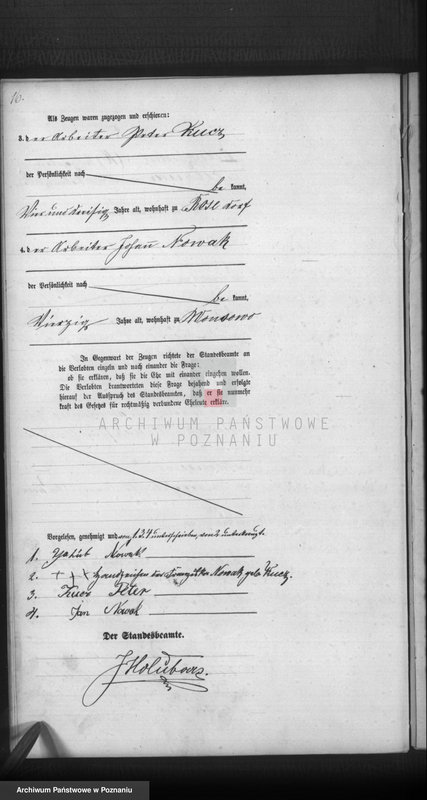 10.
Als Zeugen waren zugezogen und erschienen:
3. der Arbeiter Peter Kucz
der Persönlichkeit nach
be kannt,
Vier und dreißig Jahre alt, wohnhaft zu Rosldorf
4. der Arbeiter Johan Nowak
der Persönlichkeit nach
be kannt,
Vierzig Jahre alt, wohnhaft zu Monsowo
In Gegenwart der Zeugen richtete der Standesbeamte an
die Verlobten einzeln und nach einander die Frage:
ob sie erklären, daß sie die Ehe mit einander eingehen wollen.
Die Verlobten beantworteten diese Frage bejahend und erfolgte
hierauf der Ausspruch des Standesbeamten, daß er sie nunmehr
kraft des Gesetzes für rechtmäßig verbundene Eheleute erkläre.
ARCHIWUM PAŃSTWOWE
W POZNANIU
Vorgelesen, genehmigt und von 1.3.4 unterschrieben, von 2 unterkreuzt.
1. Jakub Nowak
2. +++ Handzeichen der Nowak geb. Kucz.
3. Kucz Peter
4. Jan Nowak
Der Standesbeamte.
Archiwum Państwowe w Poznaniu